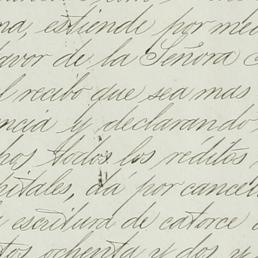 na, estiende por med
favor de la Señora
l recibo que sea mas
ncia y declarando
hos todos los réditos
pitales, da por cancel
escritura de catorce
tos ochenta y dos y